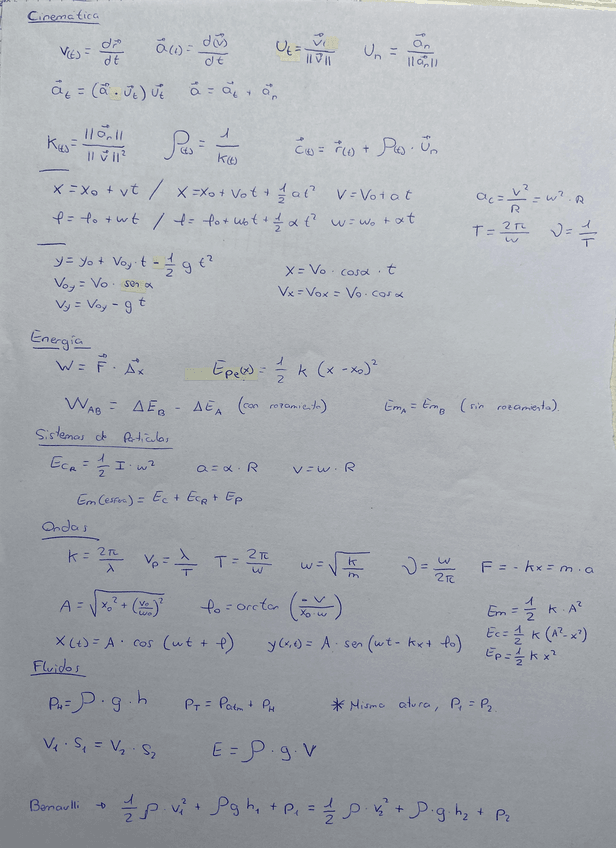 Cinematica
V(t) = d𝑟⃗/dt   a⃗(t) = d(v⃗)/dt   U⃗t = v⃗/||v⃗||   Un = a⃗n/||a⃗n||
a⃗t = (a⃗ · U⃗t) U⃗t   a⃗ = a⃗t + a⃗n
K(t) = ||a⃗n||/||v⃗||²   ρ(t) = 1/K(t)   c⃗(t) = r⃗(t) + ρ(t) · U⃗n
x = x0 + vt / x = x0 + v0t + 1/2 at²   V = V0 + at   ac = V²/R = w² · R
φ = φ0 + wt / φ = φ0 + w0t + 1/2 αt²   w = w0 + αt   T = 2π/w   ν = 1/T
y = y0 + V0y · t - 1/2 g t²   x = V0 · cosα · t
V0y = V0 · senα   Vx = V0x = V0 · cosα
Vy = V0y - g t
Energía
W = F⃗ · Δ⃗x   Epe(x) = 1/2 k (x - x0)²
WAB = ΔEB - ΔEA (con rozamiento)   EmA = EmB (sin rozamiento).
Sistemas de Particulas
ECR = 1/2 I · w²   a = α · R   v = w · R
Em(esfuc) = Ec + ECR + Ep
Ondas
K = 2π/λ   Vp = λ/T   T = 2π/w   w = √(k/m)   ν = w/2π   F = - kx = m · a
A = √(x0² + (v0/w0)²)   φ0 = arctan (-V/(x0·w))   Em = 1/2 K · A²
Ec = 1/2 K (A² - x²)
x(t) = A · cos (wt + φ)   y(x,t) = A · sen (wt - kx + φ0)   Ep = 1/2 K x²
Fluidos
PH = ρ · g · h   PT = Patm + PH   * Misma atura, P1 = P2.
V1 · S1 = V2 · S2   E = ρ · g · V
Benaulli → 1/2 ρ · v1² + ρg h1 + P1 = 1/2 ρ · v2² + ρ · g · h2 + P2